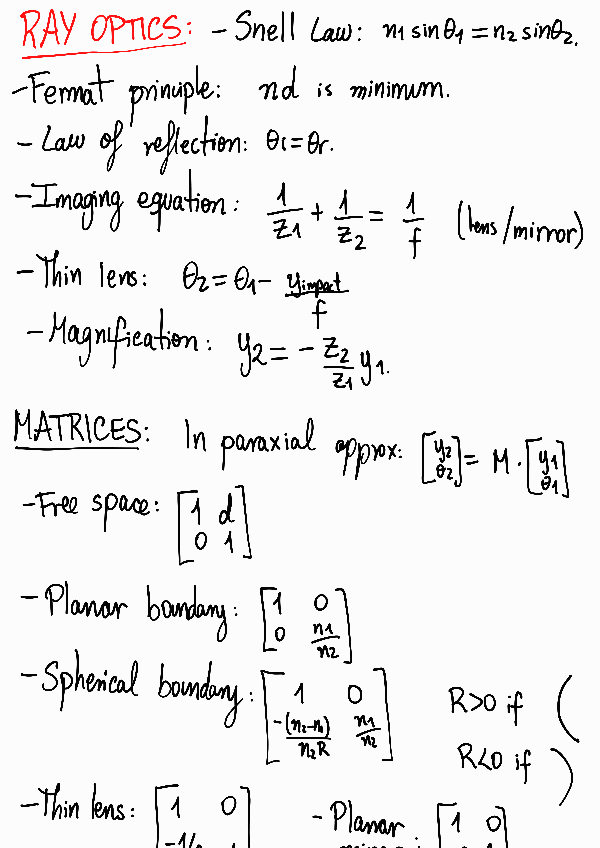 RAY OPTICS: - Snell Law: n1 sinθ1 = n2 sinθ2.
- Fermat principle: nd is minimum.
- Law of reflection: θi = θr.
- Imaging equation: 1/z1 + 1/z2 = 1/f (lens/mirror)
- Thin lens: θ2 = θ1 - yimpact/f
- Magnification: y2 = - z2/z1 y1.
MATRICES: In paraxial approx: [y2 θ2] = M · [y1 θ1]
- Free space: [1 d
0 1]
- Planar boundary: [1 0
0 n1/n2]
- Spherical boundary: [1 0 R>0 if (
-(n2-n1)/n2R n1/n2] R<0 if )
- Thin lens: [1 0] - Planar [1 0]